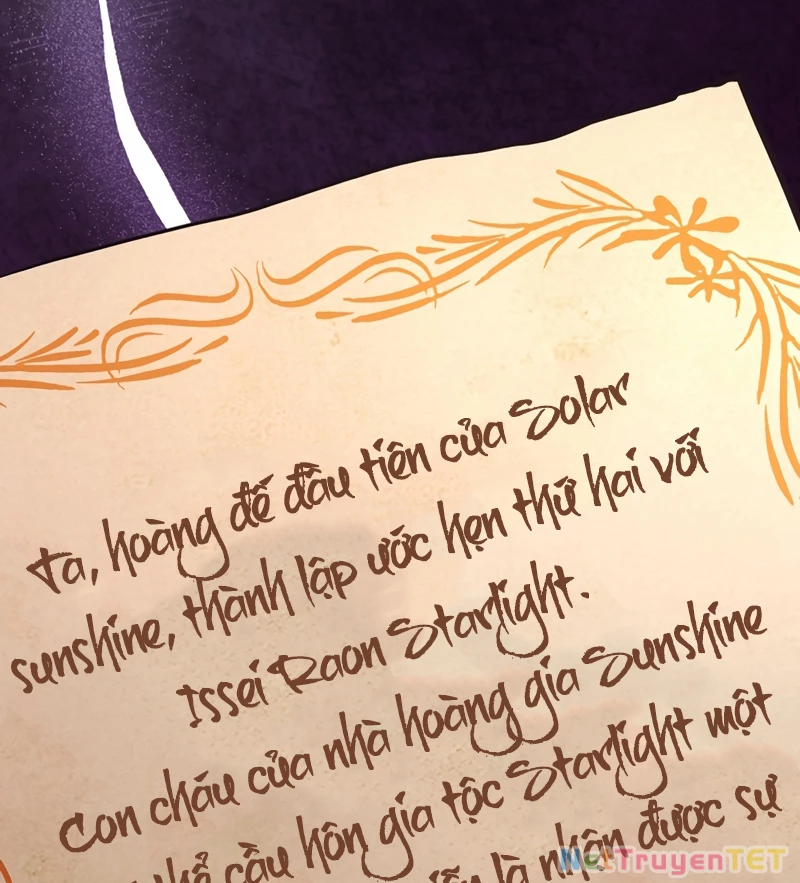 Ta, hoàng đế đầu tiên của Solar
sunshine, thành lập ước hẹn thứ hai với
Issei Raon Starlight.
Con cháu của nhà hoàng gia Sunshine
cầu hôn gia tộc Starlight một
là nhận được sự
NetTruyenTET